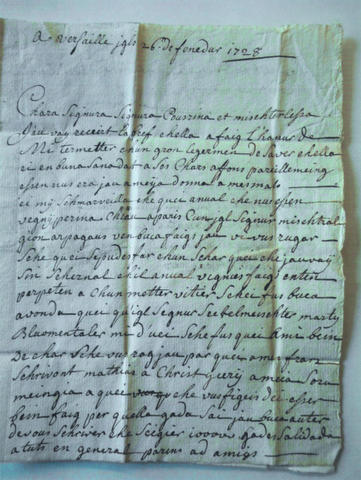 A Versaille jgls 26. de fenedur 1728
Chara Segnura Segnura Cousrina et mischterlessa
Jeu vay receirt la bref chella a faig L'hanur de
Me termetter chun gron legerment de saver chella
ei en buna sanadat a ses Chars affons pareillameing
essen nus era jau a meja donna a mes mats
ei my schmarveilla che quei anual che nus essen
vegnj perina Cheau a Paris Cun jgl Segnur mischtral
gion arpagaus ven buca faig jau vi vus rugar
Sche quei Se pudes far chun Schar quei che jau vaj
Sin Schernal chil anual vegnies faig enten
perpeten a chun metter vitier Sche ei fus buca
avonda quei qu'igl Segnur Seckelmeischter marty
Bluomentaler mi d'uei Sche fus quei Ami bein
de char Sche vus rog jau par quei a mes frars
Schrivont mathias a Christ querj a meca Sora
mengia a quei che vus figeis dei esser
bein faig per quella gada Sai jau buca auter
de vous Schriver che Seigies 100000 gadas Salidada
a tuts en general parens ad amigs